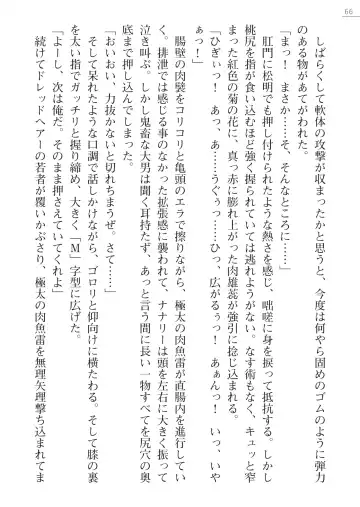 66
しばらくして軟体の攻撃が収まったかと思うと、今度は何やら固めのゴムのように弾力
のある物があてがわれた。
「まっ！　まさか……そ、そんなところに……！」
肛門に松明でも押し付けられたような熱さを感じ、咄嗟に身を捩って逃れる。しかし
桃尻に指が食い込むほど強く握られていては逃れようがない。なす術もなく、キュッと窄
まった紅色の菊の花に、真っ赤に膨れ上がった肉雄蕊が強引に捻じ込まれる。
「ひぎぃっ！　あっ、あ……うぐぅっ……ひっ、広がるぅっ！　あぁんっ！　いっ、いや
ぁっ！」
腸壁の肉襞をコリコリと亀頭のエラで擦りながら、極太の肉魚雷が直腸内を進行してい
く。排泄では感じる事のなかった拡張感に襲われて、ナナリーは頭を左右に大きく振って
泣き叫ぶ。しかし鬼畜な大男は聞く耳持たず、あっと言う間に長い一物すべてを尻穴の奥
底まで押し込んでしまった。
「おいおい、力抜かないと切れちまうぜ。さて……」
そして呆れたような口調で話しかけながら、ゴロリと仰向けに横たわる。そして膝の裏
を太い指でガッチリと握り締め、大きく「M」字型に広げた。
「よーし、次は俺だ。そのまま押さえていてくれよ」
続けてドレッドヘアーの若者が覆いかぶさり、極太の肉魚雷を無理矢理撃ち込まれてま